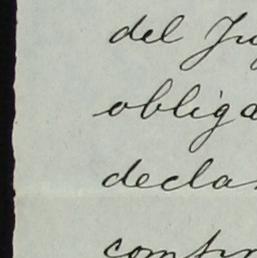 del Ju
obliga
decla
confir